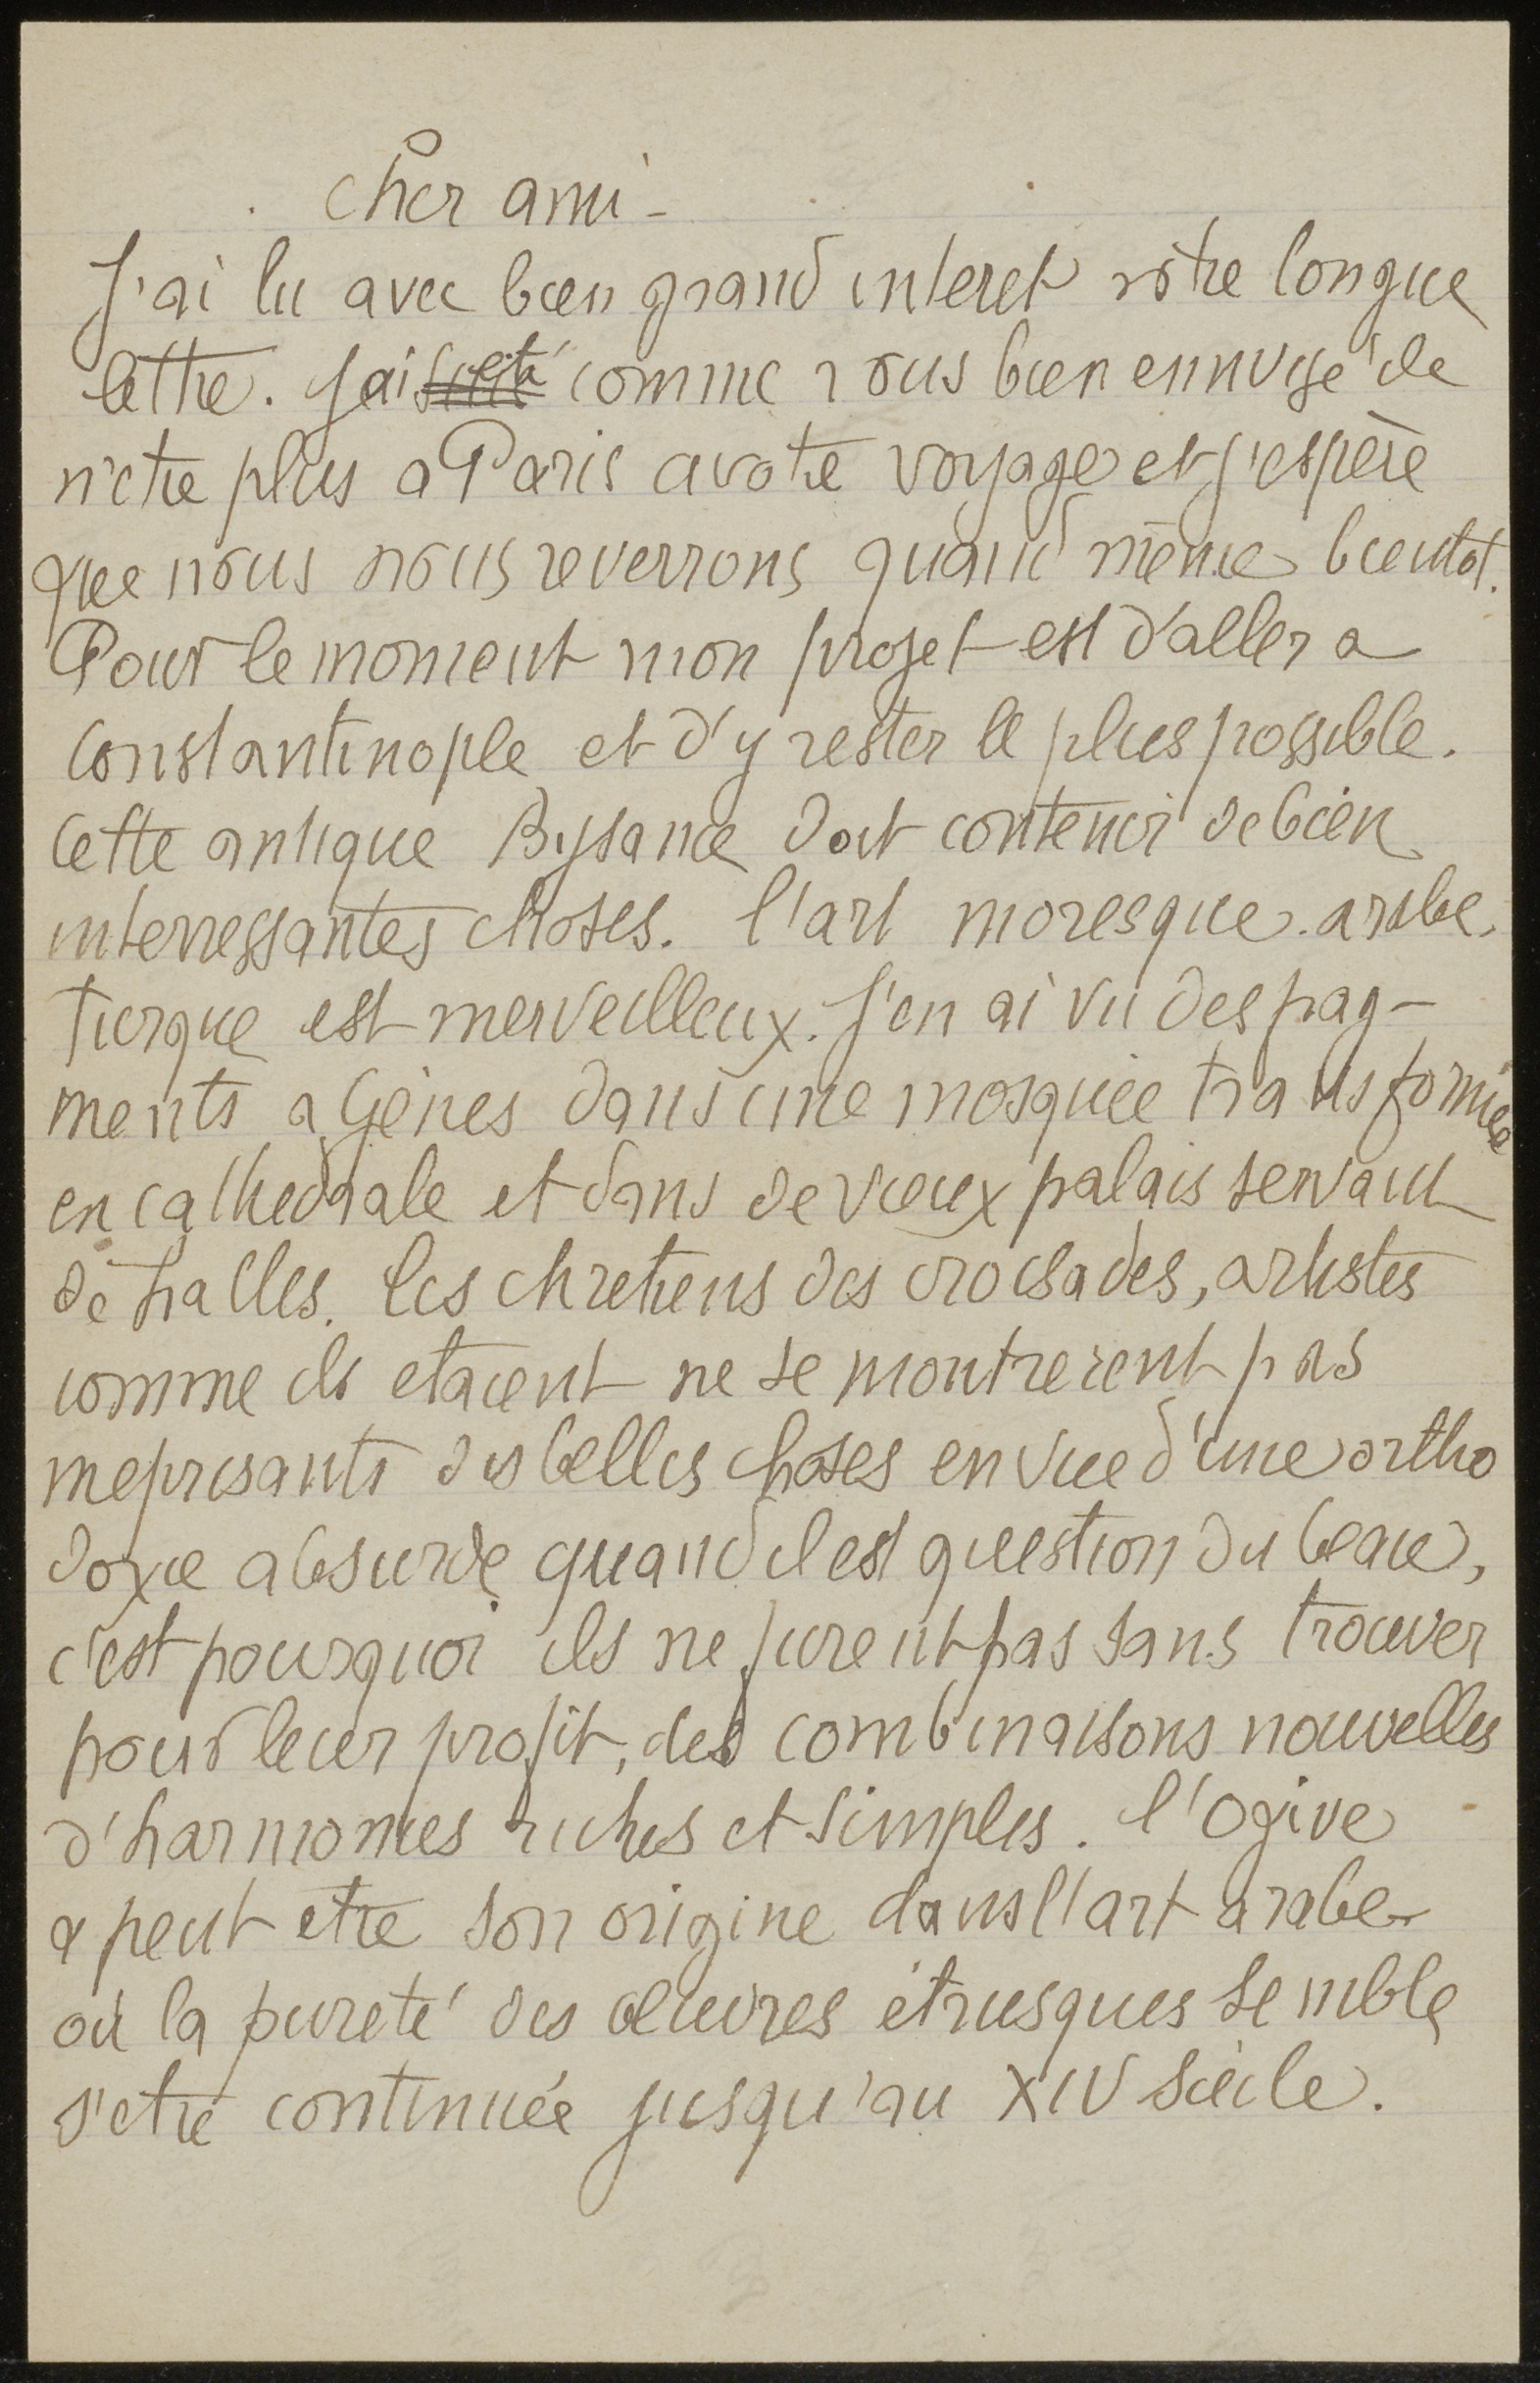 cher ami -
J'ai lu avec bien grand interet vôtre longue
lettre. J'ai été comme vous bien ennuyé de
n'etre plus a Paris a votre voyage et j'espère
que nous nous reverrons quand même bientôt.
Pour le moment mon projet est d'aller a
Constantinople et d'y rester le plus possible.
Cette antique Bysance doit contenir de bien
interressantes choses. l'art moresque. arabe.
turque est merveilleux. J'en ai vu des frag-
ments a Gènes dans une mosquée transformée
en cathedrale et dans de vieux palais servant
de halles. Les chretiens des croisades, artistes
comme ils etaient ne se montrerent pas
meprisants des belles choses en vue d'une ortho
doxie absurde quand il est question du beau,
c'est pourquoi ils ne furent pas sans trouver
pour leur profit, des combinaisons nouvelles
d'harmonies riches et simples. l'ogive
a peut etre son origine dans l'art arabe
où la pureté des oeuvres étrusques semble
s'etre continuée jusqu'au XIV siècle.